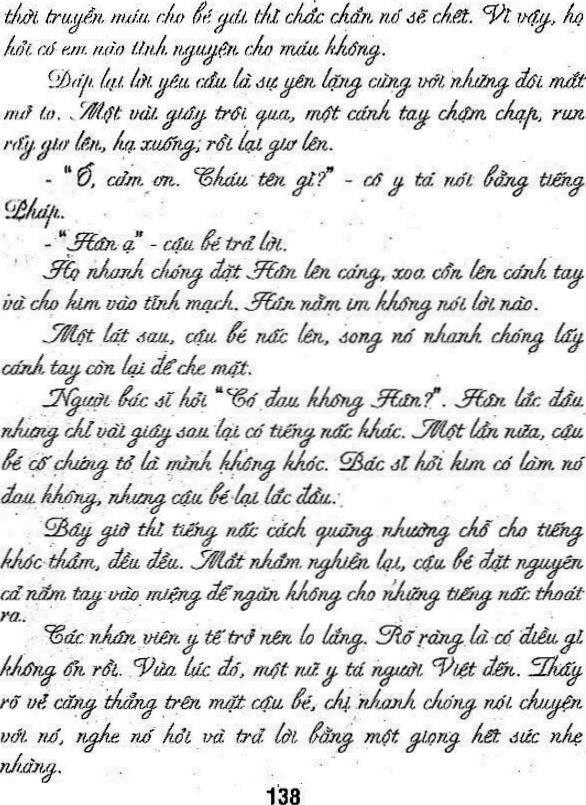 thời truyền máu cho bé gái thì chắc chắn nó sẽ chết. Vì vậy, họ
hỏi có em nào tình nguyện cho máu không.
Đáp lại lời yêu cầu là sự yên lặng cùng với những đôi mắt
mở to. Một vài giây trôi qua, một cánh tay chậm chạp, run
rẩy giơ lên, hạ xuống; rồi lại giơ lên.
- "Ồ, cảm ơn. Cháu tên gì?" - cô y tá nói bằng tiếng
Pháp.
- "Hân ạ" - cậu bé trả lời.
Họ nhanh chóng đặt Hân lên cáng, xoa cồn lên cánh tay
và cho kim vào tĩnh mạch. Hân nằm im không nói lời nào.
Một lát sau, cậu bé nấc lên, song nó nhanh chóng lấy
cánh tay còn lại để che mặt.
Người bác sĩ hỏi "Có đau không Hân?". Hân lắc đầu
nhưng chỉ vài giây sau lại có tiếng nấc khác. Một lần nữa, cậu
bé cố chứng tỏ là mình không khóc. Bác sĩ hỏi kim có làm nó
đau không, nhưng cậu bé lại lắc đầu.
Bây giờ thì tiếng nấc cách quãng nhường chỗ cho tiếng
khóc thầm, đều đều. Mắt nhắm nghiền lại, cậu bé đặt nguyên
cả nắm tay vào miệng để ngăn không cho những tiếng nấc thoát
ra..
Các nhân viên y tế trở nên lo lắng. Rõ ràng là có điều gì
không ổn rồi. Vừa lúc đó, một nữ y tá người Việt đến. Thấy
rõ vẻ căng thẳng trên mặt cậu bé, chị nhanh chóng nói chuyện
với nó, nghe nó hỏi và trả lời bằng một giọng hết sức nhẹ
nhàng.
138